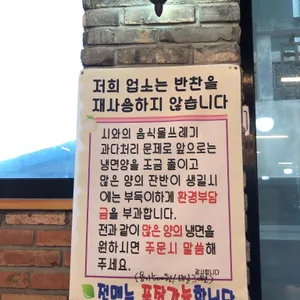 저희 업소는 반찬을
재사용하지 않습니다
시와의 음식물쓰레기
과다처리 문제로 앞으로는
냉면양을 조금 줄이고
많은 양의 잔반이 생길시
에는 부득이하게 환경부담
금을 부과합니다.
전과 같이 많은 양의 냉면을
원하시면 주문시 말씀해
주세요.
감사합니다
전메뉴 포장가능합니다